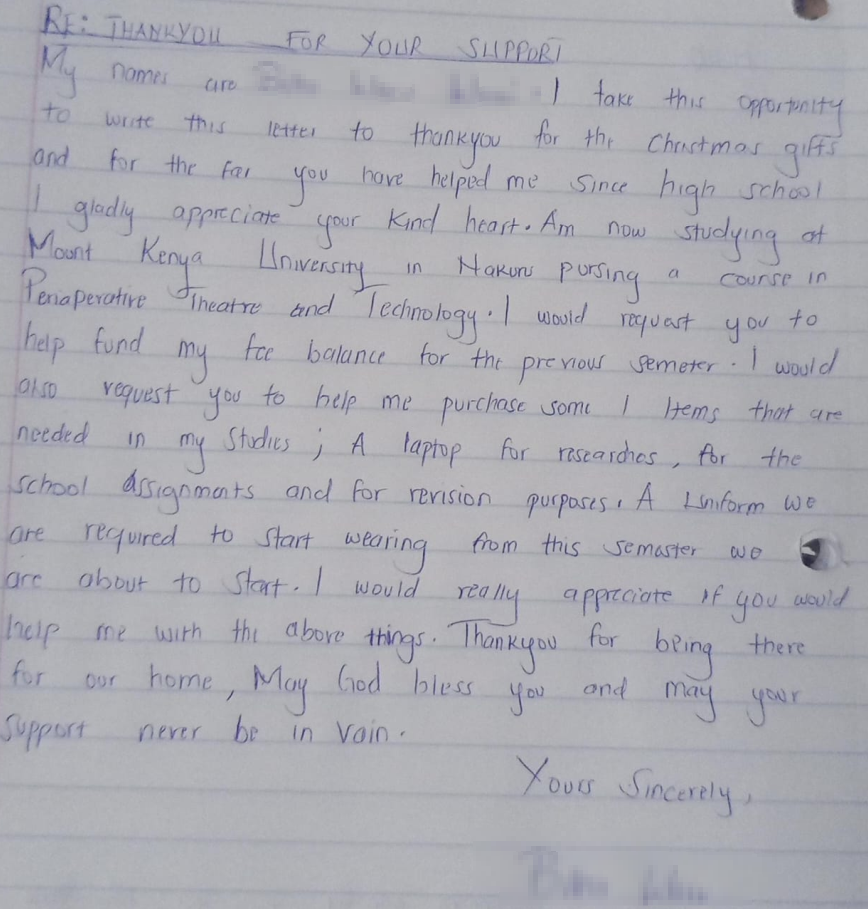 RE: THANKYOU FOR YOUR SUPPORT
My names are I take this opportunity
to write this letter to thankyou for the Christmas gifts
and for the far you have helped me since high school
I gladly appreciate your kind heart. Am now studying at
Mount Kenya University in Nakuru pursing a course in
Perioperative Theatre and Technology. I would request you to
help fund my fee balance for the previous semeter. I would
also request you to help me purchase some Items that are
needed in my studies; A laptop for researches, for the
school Assignments and for revision purposes. A Uniform we
are required to start wearing from this semester we
are about to start. I would really appreciate if you would
help me with the above things. Thankyou for being there
for our home, May God bless you and may your
support never be in vain.
Yours Sincerely,